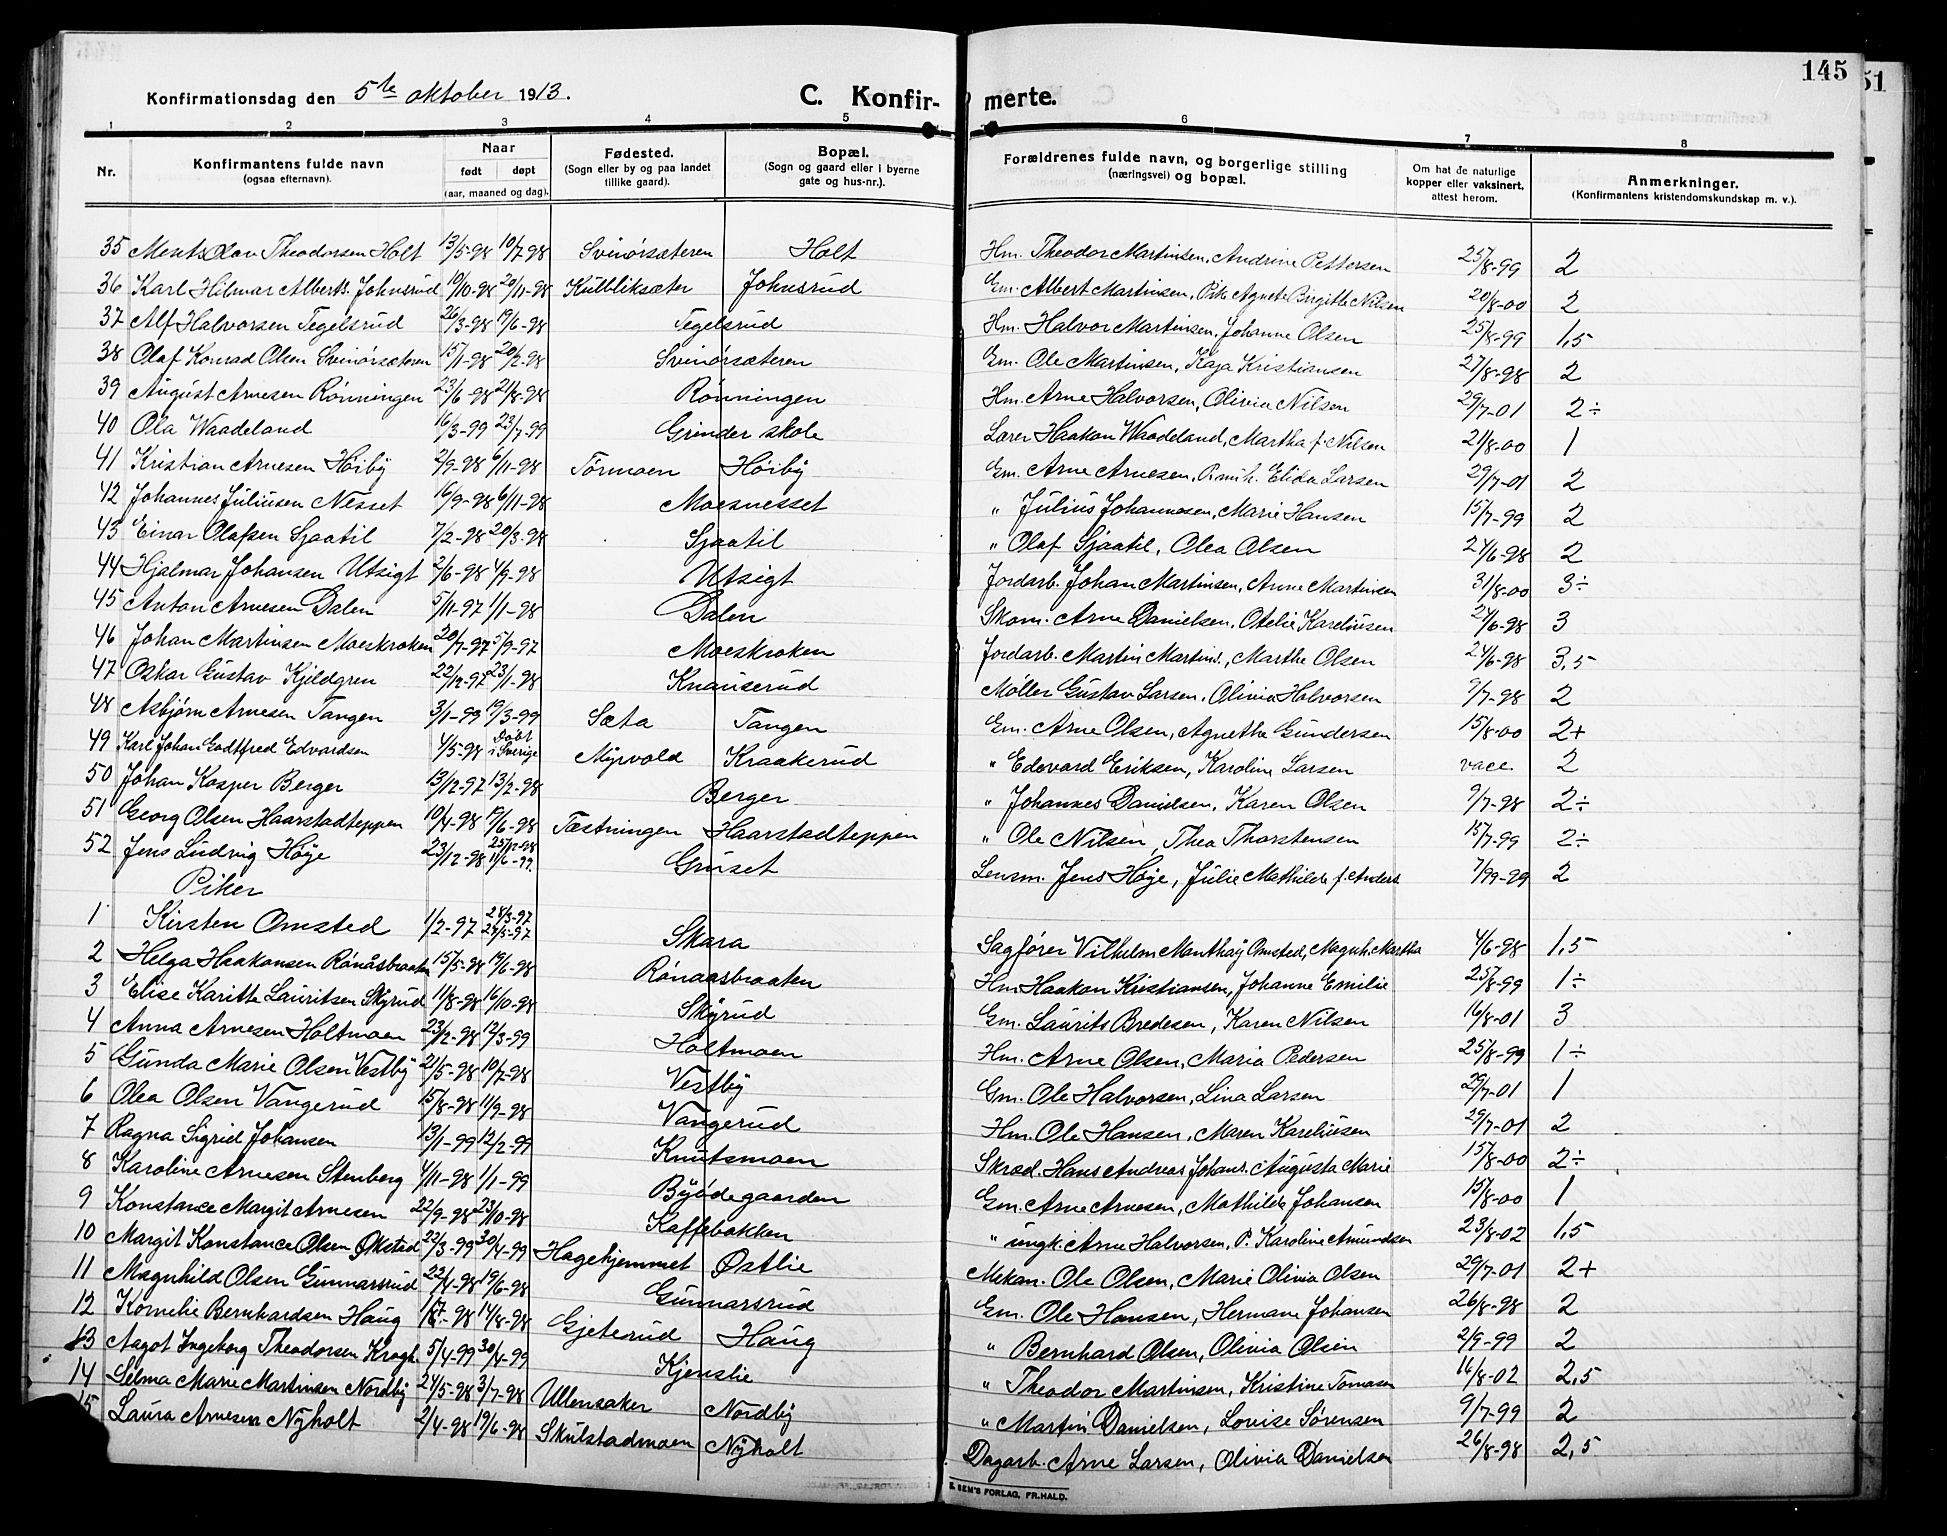 145
51
Konfirmationsdag den 5te oktober 1913.
C. Konfirmerte.
1 2 3 4 5 6 7 8
Nr.
Konfirmantens fulde navn (ogsaa efternavn).
Naar født døpt (aar, maaned og dag).
Fødested. (Sogn eller by og paa landet tillike gaard).
Bopæl. (Sogn og gaard eller i byerne gate og hus-nr.).
Forældrenes fulde navn, og borgerlige stilling (næringsvei) og bopæl.
Om hat de naturlige kopper eller vaksinert, attest herom.
Anmerkninger. (Konfirmantens kristendomskundskap m. v.).
35 Ments Olav Theodorsen Holt 13/5-98 10/7-98 Svinörsæteren Holt Hm. Theodor Martinsen, Andrine Pettersen 25/8-99 2
36 Karl Hilmar Alberts. Johnsrud 19/10-98 20/11-98 Kulbliksæter Johnsrud Gm. Albert Martinsen, Pike Agnete Birgitte Nilsen 20/8-00 2
37 Alf Halvorsen Tegelsrud 26/3-98 19/6-98 Tegelsrud Hm. Halvor Martinsen, Johanne Olsen 25/8-99 1,5
38 Olaf Konrad Olsen Svinörsæteren 15/1-98 20/2-98 Svinörsæteren Gm. Ole Martinsen, Kaja Kristiansen 27/8-98 2
39 August Arnesen Rönningen 23/6-98 21/8-98 Rönningen Hm. Arne Halvorsen, Olivia Nilsen 29/7-01 2÷
40 Ola Waadeland 16/3-99 23/7-99 Grinder skole Lærer Haakon Waadeland, Martha f. Nilsen 21/8-00 1
41 Kristian Arnesen Höiby 2/9-98 6/11-98 Törmoen Höiby Gm. Arne Arnesen, Elida Larsen 29/7-01 2
42 Johannes Juliusen Nesset 16/9-98 6/11-98 Moesnesset " Julius Johannesen, Marie Hansen 15/7-99 2
43 Einar Olafsen Sjaatil 7/2-98 20/3-98 Sjaatil " Olaf Sjaatil, Olea Olsen 24/6-98 2
44 Hjalmar Johansen Utsigt 2/6-98 4/9-98 Utsigt Jordarb. Johan Martinsen, Anne Martinsen 31/8-00 3÷
45 Anton Arnesen Dalen 5/11-97 1/1-98 Dalen Skom. Arne Danielsen, Otelie Kareliusen 24/6-98 3
46 Johan Martinsen Moeskroken 20/7-97 5/9-97 Moeskroken Jordarb. Martin Martins., Marthe Olsen 24/6-98 3,5
47 Oskar Gustav Kjeldgren 22/12-97 23/1-98 Knauserud Møller Gustav Larsen, Olivia Halvorsen 9/7-98 2
48 Asbjørn Arnesen Tangen 3/1-99 19/3-99 Sæta Tangen Gm. Arne Olsen, Agnethe Gundersen 15/8-00 2+
49 Karl Johan Godtfred Edvardsen 4/5-98 Døbt i Sverige Myrvold Kraakerud " Edevard Eriksen, Karoline Larsen vacc. 2
50 Johan Kasper Berger 13/12-97 13/2-98 Berger " Johannes Danielsen, Karen Olsen 9/7-98 2÷
51 Georg Olsen Haarstadteppen 10/4-98 19/6-98 Tæstningen Haarstadteppen " Ole Nilsen, Thea Thorstensen 15/7-99 2÷
52 Jens Ludvig Høye 23/12-98 25/12-98 11/6-99 Gruset Lensm. Jens Høye, Julie Mathilde f. Anders. 7/99-99 2
Piker
1 Kirsten Omsted 1/2-97 28/3-97 24/5-97 Skara Sagfører Vilhelm Manthay Omsted, Magnh. Martha 4/6-98 1,5
2 Helga Haakonsen Rönåsbraaten 15/5-98 19/6-98 Rönaasbraaten Hm. Haakon Kristiansen, Johanne Emilie 25/8-99 1÷
3 Elise Karitte Lauritsen Skyrud 11/8-98 16/10-98 Skyrud Gm. Laurits Bredesen, Karen Nilsen 16/8-01 3
4 Anna Arnesen Holtmoen 23/12-98 12/3-99 Holtmoen Hm. Arne Olsen, Maria Pedersen 25/8-99 1÷
5 Gunda Marie Olsen Vestby 21/5-98 10/7-98 Vestby Gm. Ole Halvorsen, Lina Larsen 29/7-01 1
6 Olea Olsen Vangerud 15/8-98 11/9-98 Vangerud Hm. Ole Hansen, Maren Kareliusen 29/7-01 2
7 Ragna Sigrid Johansen 13/1-99 12/2-99 Knutsmoen Skræd. Hans Andreas Johans. Augusta Marie 15/8-00 2÷
8 Karoline Arnesen Stenberg 4/11-98 1/1-99 Byödegaarden Gm. Arne Arnesen, Mathilde Johansen 15/8-00 1
9 Konstance Margit Arnesen 22/9-98 23/10-98 Kaffebakken " ungk. Arne Halvorsen, P. Karoline Amundsen 23/8-02 1,5
10 Margit Konstance Olsen Økstad 22/3-99 30/4-99 Hagehjemmet Østlie Mekan. Ole Olsen, Marie Olivia Olsen 29/7-01 2+
11 Magnhild Olsen Gunnarsrud 22/4-98 19/6-98 Gunnarsrud Gm. Ole Hansen, Hermane Johansen 26/8-98 2
12 Kornelie Bernhardsen Haug 98 14/8-98 Gjeterud Haug " Bernhard Olsen, Olivia Olsen 2/9-99 2
13 Aagot Ingeborg Theodorsen Krogh 5/4-99 30/4-99 Kjenslie " Theodor Martinsen, Kristine Tomasen 16/8-02 2,5
14 Selma Marie Martinsen Nordby 24/5-98 3/7-98 Ullensaker Nordby " Martin Danielsen, Lovise Sørensen 9/7-99 2
15 Laura Arnesen Nyholt 2/4-98 19/6-98 Skulstadmoen Nyholt Dagarb. Arne Larsen, Olivia Danielsen 26/8-98 2,5
E. SEM'S FORLAG, FR.HALD.